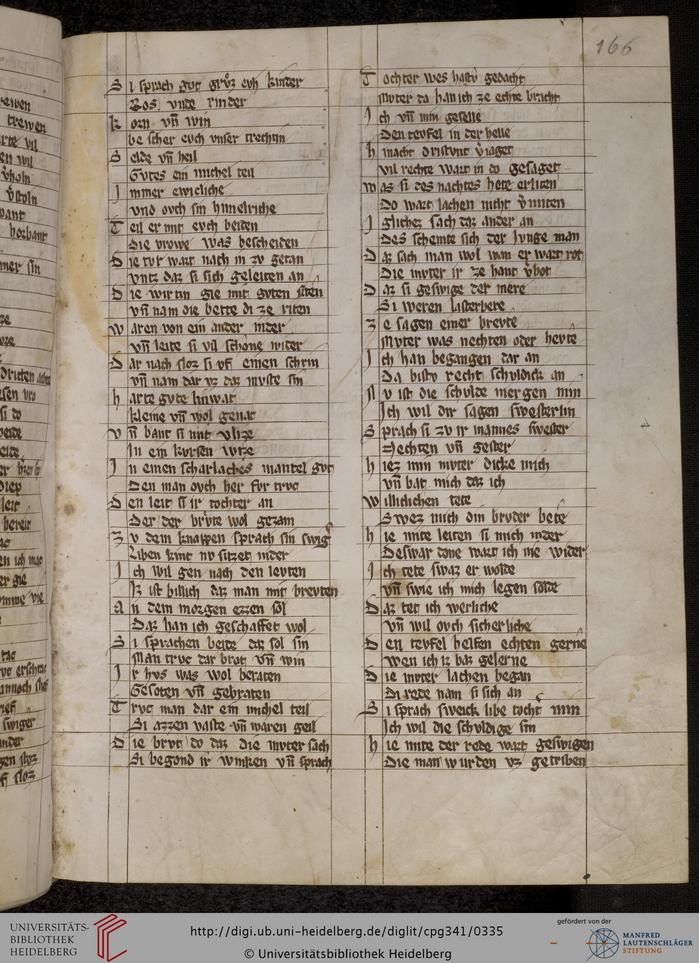 166
S i sprach got grvͦz evh kinder
Ros vnde rinder
k orn vn̄ win
be scher evch vnser trechtin
S elde vn̄ heil
Gvtes ein michel teil
J mmer ewicliche
vnd ovch sin himelriche
T eil er mit evch beiden
Die vrowe was bescheiden
D ie tvr wart nach in zv getan
vntz daz si sich geleiten an
D ie wirtin gie mit gvten siten
vn̄ nam die bette di ze riten
w aren von ein ander nider
vn̄ leite si vil schone wider
D ar nach sloz si vf einen schrin
vn̄ nam dar vz daz mvste sin
h arte gvte linwat
kleine vn̄ wol genat
v n̄ bant si mit vlize
In ein kvrsen wize
J n einen scharlaches mantel gvt
Den man ovch her fvr trvc
D en leit si ir tochter an
Der der brvte wol gezam
Z v dem knappen sprach sin swig
Liben kint nv sitzet nider
J ch wil gen nach den levten
Iz ist billich daz man mit brevten
A n dem morgen ezzen sol
Daz han ich geschaffet wol
S i sprachen beide daz sol sin
Man trvc dar brot vn̄ win
J r hvs was wol beraten
Gesoten vn̄ gebraten
T rvc man dar ein michel teil
Si azzen vaste vn̄ waren geil
D ie brvt do daz die mvter sach
Si begond ir winken vn̄ sprach
T ochter wes hastv gedacht
mvter da han ich ze echte bracht
J ch vn̄ min geselle
Den tevfel in der helle
h inacht dristvnt v̓iaget
vil rechte wart in do gesaget
w as si des nachtes hete erliten
Do wart lachen nicht v̓miten
J glichez sach daz ander an
Des schemte sich der ivnge man
D az sach man wol wan er wart rot
Die mvter ir ze hant v̓bot
D az si geswige der mere
Si weren lasterbere
Z e sagen einer brevte
Mvter was nechten oder hevte
J ch han begangen dar an
Da bistv recht schvldick an
N v ist die schvlde mergen min
Ich wil dir sagen swesterlin
S prach si zv ir mannes swester
Nechten vn̄ gester
h iez min mvter dicke mich
vn̄ bat mich daz ich
w illiclichen tete
Swez mich din brvder bete
h ie mite leiten si mich nider
Deswar done wart ich nie wider
J ch tete swaz er wolde
vn̄ swie ich mich legen solde
D az tet ich werliche
vn̄ wil ovch sicherliche
D en tevfel helfen echten gerne
Wen ich iz baz gelerne
D ie mvter lachen began
Di rede nam si sich an
S i sprach sweick libe tocht̓ min
Ich wil die schvldige sin
h ie mite der rede wart geswigen
Die man wurden vz getriben
UNIVERSITÄTS-
BIBLIOTHEK
HEIDELBERG
http://digi.ub.uni-heidelberg.de/diglit/cpg341/0335
© Universitätsbibliothek Heidelberg
gefördert von der
MANFRED
LAUTENSCHLÄGER
STIFTUNG